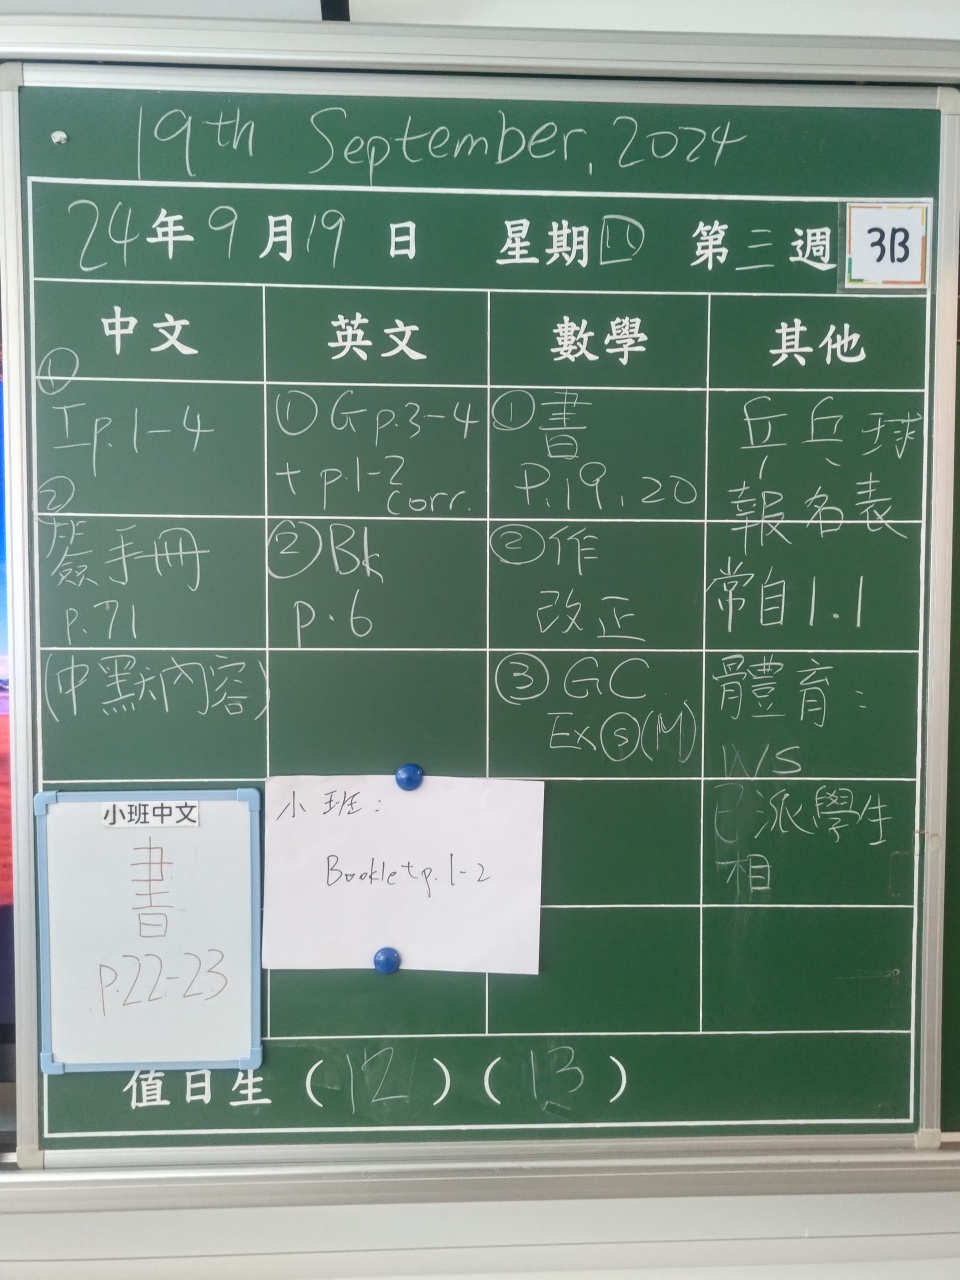 19th September, 2024
24年9月19日 星期四 第三週 3B
中文
①
工p.1-4
②
簽手冊
p.71
(中默內容)
小班中文
書
p.22-23
英文
①Gp.3-4
+p.1-2
corr.
②Bk
p.6
小班:
Booklet p.1-2
數學
①書
P.19,20
②作
改正
③GC
Ex⑤(M)
其他
乒乓球
報名表
常自1.1
體育:
WS
已派學生
相
值日生(12)(13)